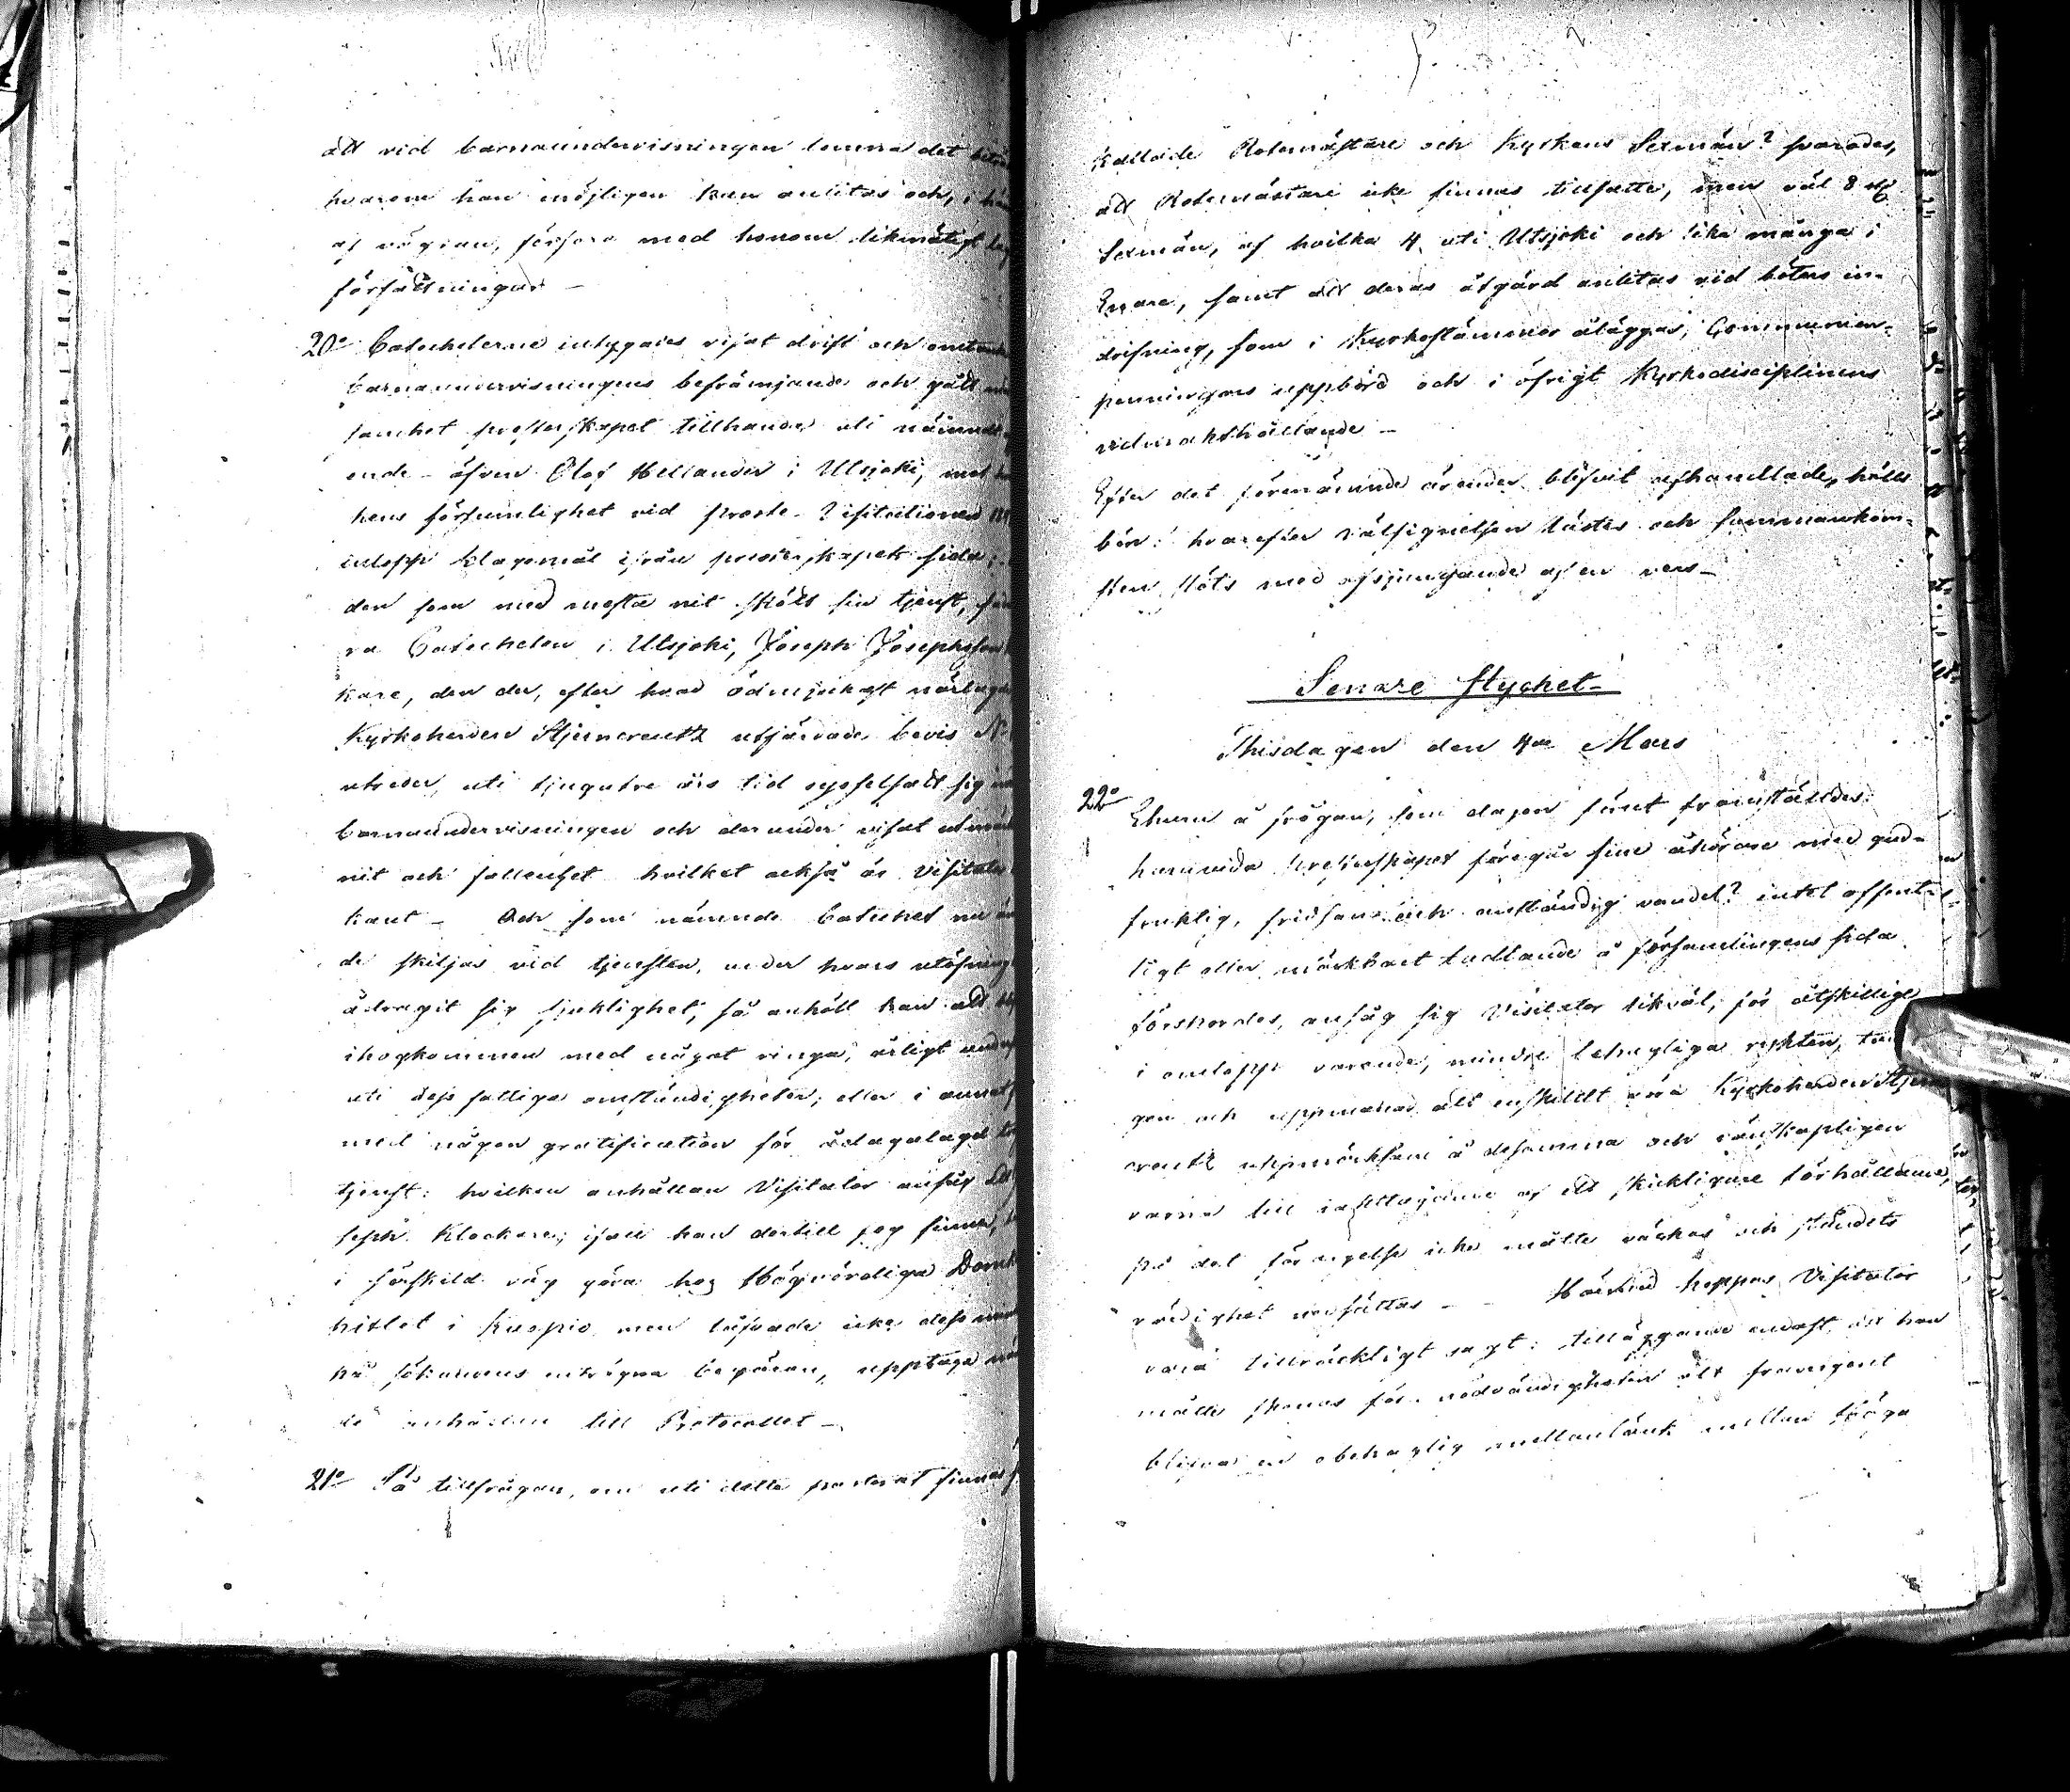 att vid barnaundervisningen lemna det
hvarom han möjligen kan anlitas och, i
af vägran, förfara med honom likmätigt
författningar –
20o Catecheterne intygades visat drift och
barnaundervisningens befrämjande och gått
samhet presterskapet tillhanda uti
ende – äfven Olof Hellander i Utsjoki, mot
hens försumlighet vid Prosts-Visitationen
inlopp klagomål ifrån presterskapets sida;
den som med mesta nit skött sin tjenst,
ra Catecheten i Utsjoki, Joseph Josephsson
kare, den der, efter hvad ödmjukast
Kyrkoherden Stjerncreutz utfärdade bevis
utreder, uti tjugutre års tid sysselsatt sig
barnaundervisningen och derunder visat
nit och fallenhet hvilket också är
kant – Och som nämnde Catechet
de skiljas vid tjensten, under hvars
ådragit sig sjuklighet, så anhöll han att
ihogkommen med något ringa, årligt
uti dess fattiga omständigheter, eller i
med någon gratification för ådagalagd
tjenst: hvilken anhållan Visitator ansåg
seph Klockare, ifall han dertill fog finner,
i särskild väg göra hos Högvördiga
hitlet i Kuopio, men läfvade icke dess
på sökandens enträgna begäran, upptaga
de anhållan till Protocollet –
21o På tillfrågan, om uti detta pastorat finnas
kallade Rotemästare och Kyrkans Sexmän? svarades,
att Rotemästare icke finnas tillsatte, men väl 8
Sexmän, af hvilka 4 uti Utsjoki och lika många i
Enare, samt att deras åtgärd anlitas vid böters in-
drifning, som i Kyrkostämmor åläggas, Communion-
penningars uppbörd och i öfrigt Kyrkodisciplinens
vidmakthållande –
Efter det förenämnde ärender blifvit afhandlade, hölls
bön: hvarefter välsignelsen lästes och sammankom-
sten slöts med afsjungande af en vers –
Senare stycket –
Thisdagen den 4de Mars
22o Ehuru å frågan, som dagen förut framställdes:
huruvida Presterskapet föregår sine åhörare med gud-
fruktig, fridsam och anständig vandel? intet offent-
ligt eller märkbart tadlande å församlingens sida
förspordes, ansåg sig Visitator likväl, för åtskillige
i omlopp varande, mindre behagliga rykten,
gen och uppmanad att enskildt göra Kyrkoherden
creutz uppmärksam å desamma och vänskapligen
varna till iakttagande af ett skickligare förhållande,
på det förargelse icke måtte väckas och ståndets
värdighet nedsättas – – Härmed hoppas Visitator
vara tillräckligt sagt: tilläggande endast, att han
måtte skonas för nödvändigheten att framgent
blifva en obehaglig mellanlänk mellan höga